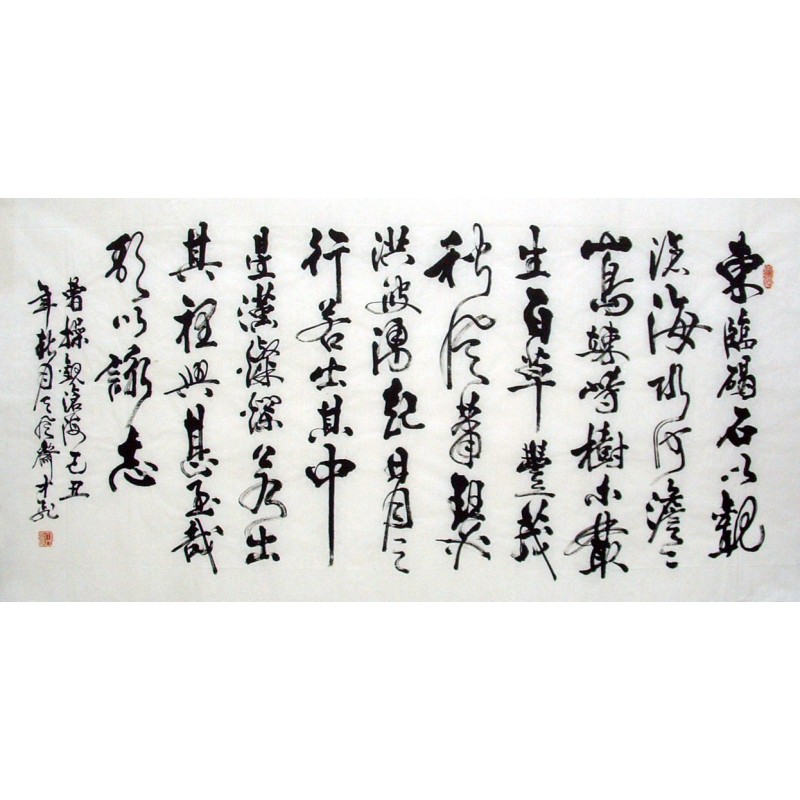 東臨碣石以觀
滄海水何澹々
山島竦峙樹木叢
生百草豐茂
秋風蕭瑟
洪波湧起日月之
行若出其中
星漢燦爛若出
其裡興甚至哉
歌以詠志
曹操觀滄海己丑
年秋月於齋